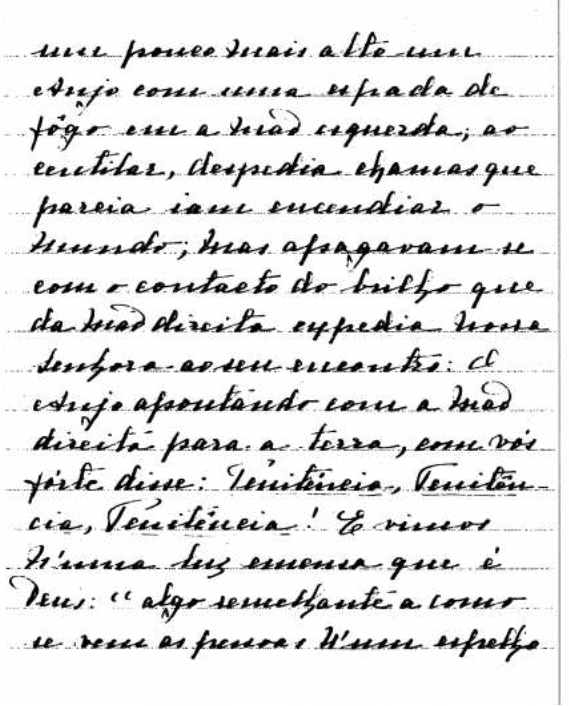 um pouco mais alto um
Anjo com uma espada de
fôgo em a mão esquerda; ao
centilar, despedia chamas que
parcia iam encendiar o
mundo; mas apagavam-se
com o contacto do brilho que
da mão direita expedia Nossa
Senhora ao seu encontro: O
Anjo apontando com a mão
direita para a terra, com vós
fórte disse: Penitência, Penitên-
cia, Penitência! E vimos
n'uma luz emensa que é
Deus: “algo semelhante a como
se vem as pessoas n'um espelho